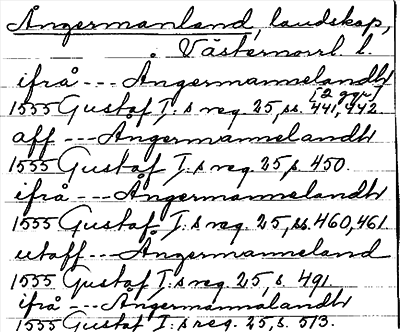 Ångermanland, landskap,
Västernorrl. l.
ifrå --- Ångermannelandh
[2 ggr]
1555 Gustaf I:s reg. 25, ss. 441, 442.
aff --- Ångermannelandh
1555 Gustaf I:s reg. 25, s. 450.
ifrå --- Ångermannelandh
1555 Gustaf I:s reg. 25, ss. 460, 461.
utaff --- Ångermanneland
1555 Gustaf I:s reg. 25, s. 491.
ifrå --- Ångermannalandh
1555 Gustaf I:s reg. 25, s. 513.